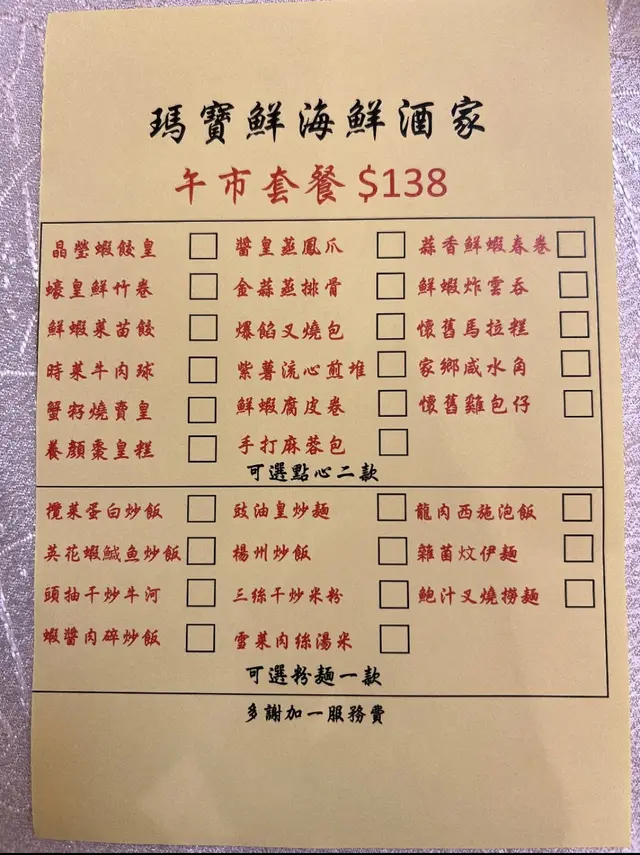 瑪寶鮮海鮮酒家
午市套餐 $138
晶瑩蝦餃皇 醬皇蒸鳳爪 蒜香鮮蝦春卷
蠔皇鮮竹卷 金蒜蒸排骨 鮮蝦炸雲吞
鮮蝦菜苗餃 爆餡叉燒包 懷舊馬拉糕
時菜牛肉球 紫薯流心煎堆 家鄉咸水角
蟹籽燒賣皇 鮮蝦腐皮卷 懷舊雞包仔
養顏棗皇糕 手打麻蓉包
可選點心二款
欖菜蛋白炒飯 豉油皇炒麵 龍肉西施泡飯
英花蝦鹹魚炒飯 楊州炒飯 雜菌炆伊麵
頭抽干炒牛河 三絲干炒米粉 鮑汁叉燒撈麵
蝦醬肉碎炒飯 雪菜肉絲湯米
可選粉麵一款
多謝加一服務費